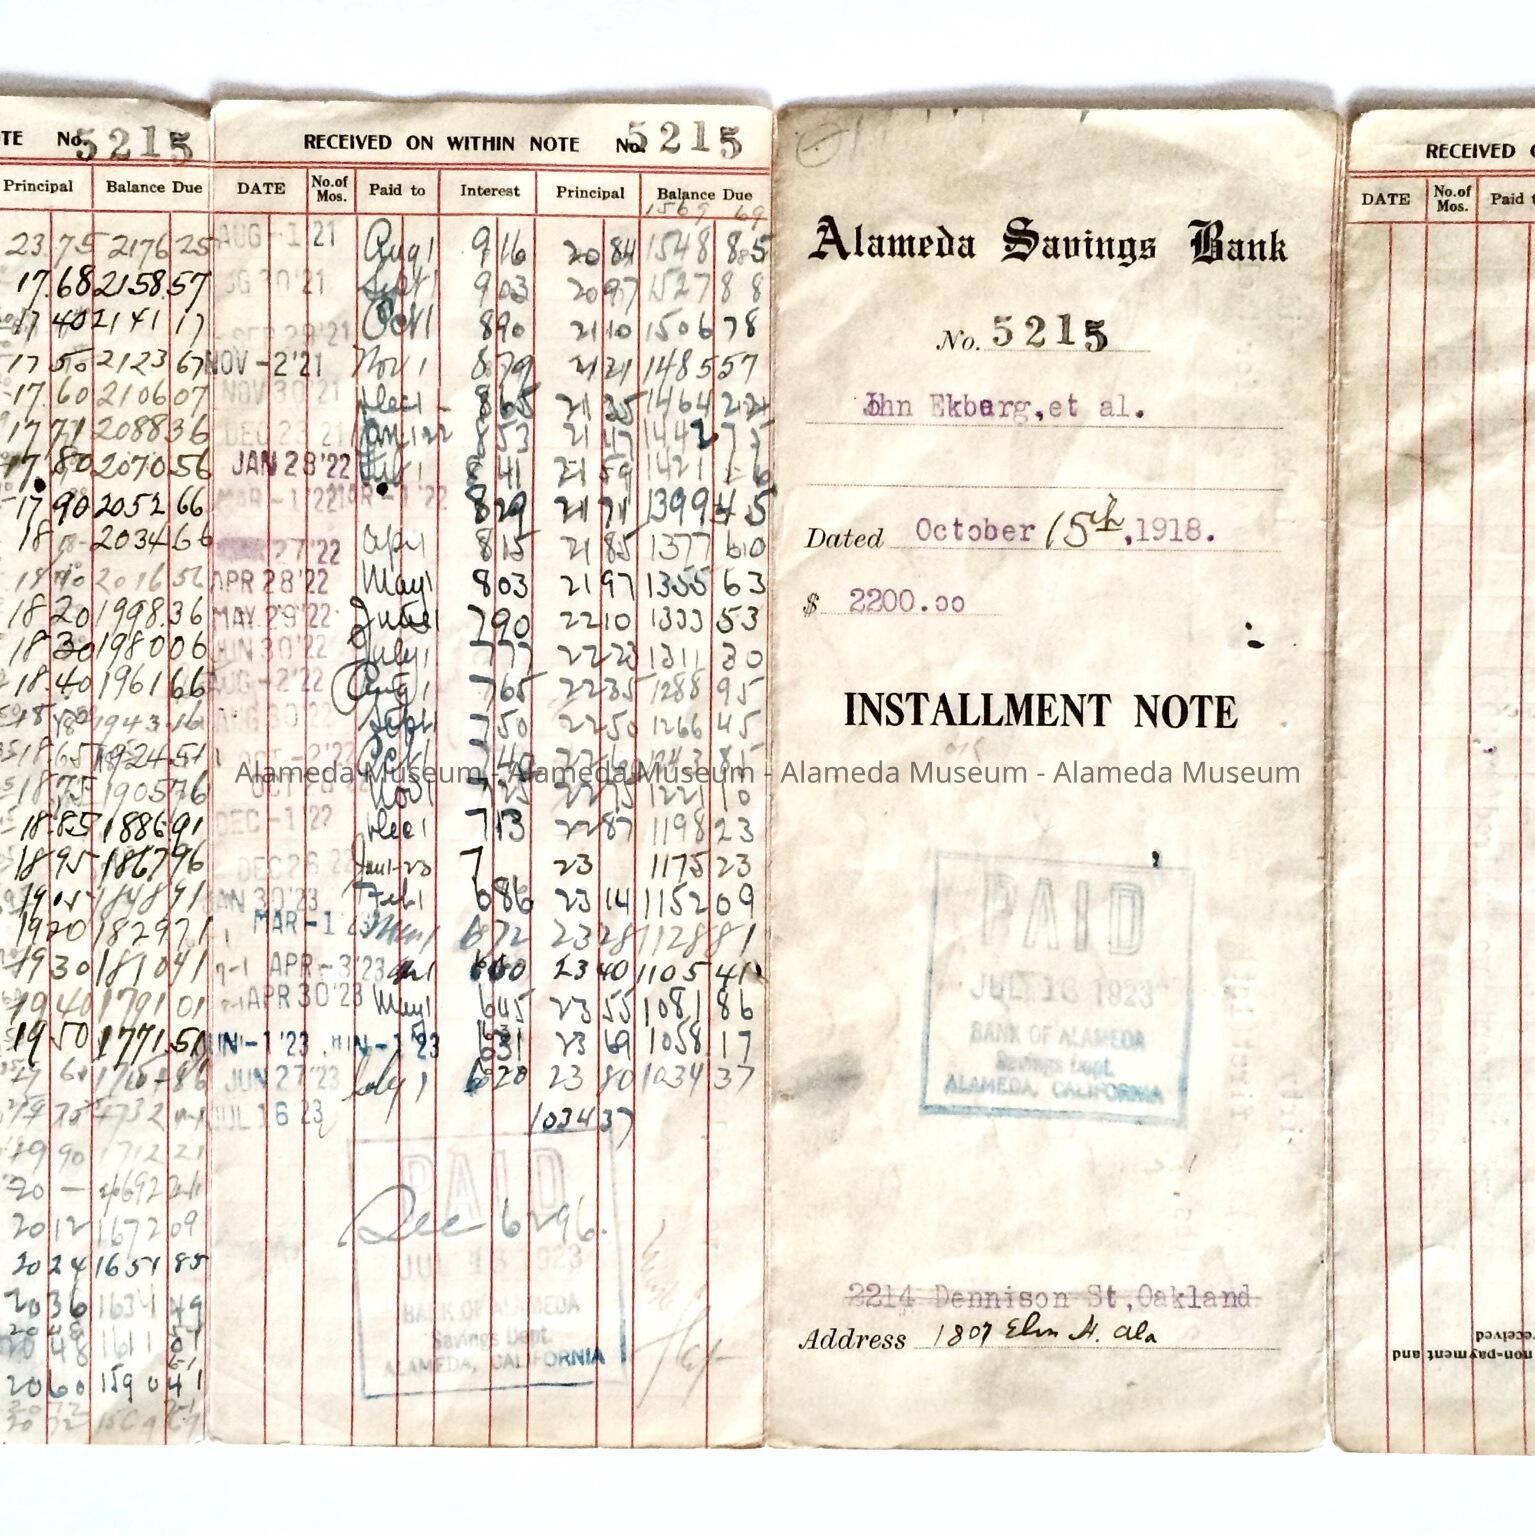 TE No. 5215
Principal Balance Due
23.75 2176 25
17.68 2158.57
17 40 2141 17
17 50 2123 67
17.60 2106 07
17 71 2088 36
17.80 2070 56
17 90 2052 66
18 - 2034 66
18 10 2016 56
18 20 1998.36
18 30 1980 06
18.40 1961 66
18 50 1943.16
18.65 1924 51
18.75 1905 76
18.85 1886 91
18 95 1867 96
1848 91
19 20 1829 71
19 30 1810 41
19 40 1791 01
19 50 1771 51
19 90 1712 21
20 - 1692 21
20 12 1672 09
20 24 1651 85
20 36 1631 49
20 48 1611 01
20 60 1590 41
RECEIVED ON WITHIN NOTE No. 5215
DATE No. of Mos. Paid to Interest Principal Balance Due
1569 69
AUG -1 '21 Aug 1 9 16 20 84 1548 85
AUG 30 '21 Sept 1 9 03 20 97 1527 88
SEP 29 '21 Oct 1 8 90 21 10 1506 78
NOV -2 '21 Nov 1 8 79 21 21 1485 57
NOV 30 '21 Dec 1 8 65 21 35 1464 22
DEC 23 21 Jan 1 22 8 53 21 47 1442 75
JAN 28 '22 Feb 1 8 41 21 59 1421 16
MAR -1 '22 MAR -1 '22 8 29 21 71 1399 45
27 '22 Apr 1 8 15 21 85 1377 60
APR 28 '22 May 1 8 03 21 97 1355 63
MAY 29 '22 June 1 7 90 22 10 1333 53
JUN 30 '22 July 1 7 77 22 23 1311 30
AUG -2 '22 Aug 1 7 65 22 35 1288 95
AUG 30 '22 Sept 1 7 50 22 50 1266 45
OCT -2 '22 Oct 1 7 40 22 60 1243 85
Nov 1 7 25 22 75 1221 10
DEC -1 '22 Dec 1 7 13 22 87 1198 23
DEC 26 22 Jan 1-23 7 23 1175 23
JAN 30 '23 Feb 1 6 86 23 14 1152 09
MAR -1 23 Mar 1 6 72 23 28 1128 81
APR -3 '23 Apr 1 6 60 23 40 1105 41
APR 30 '23 May 1 6 45 23 55 1081 86
JUN -1 '23 JUN -1 '23 6 31 23 69 1058 17
JUN 27 '23 July 1 6 20 23 80 1034 37
JUL 16 23 1034 37
PAID
Dec 6296.
JUL 16 1923
BANK OF ALAMEDA
Savings Dept.
ALAMEDA, CALIFORNIA
Alameda Savings Bank
No. 5215
John Ekberg, et al.
Dated October 15th, 1918.
$ 2200.00
INSTALLMENT NOTE
PAID
JUL 16 1923
BANK OF ALAMEDA
Savings Dept.
ALAMEDA, CALIFORNIA
2214 Dennison St, Oakland
Address 1807 Elm St. Ala
RECEIVED O
DATE No. of Mos. Paid t
non-payment and
received
Alameda Museum - Alameda Museum - Alameda Museum - Alameda Museum